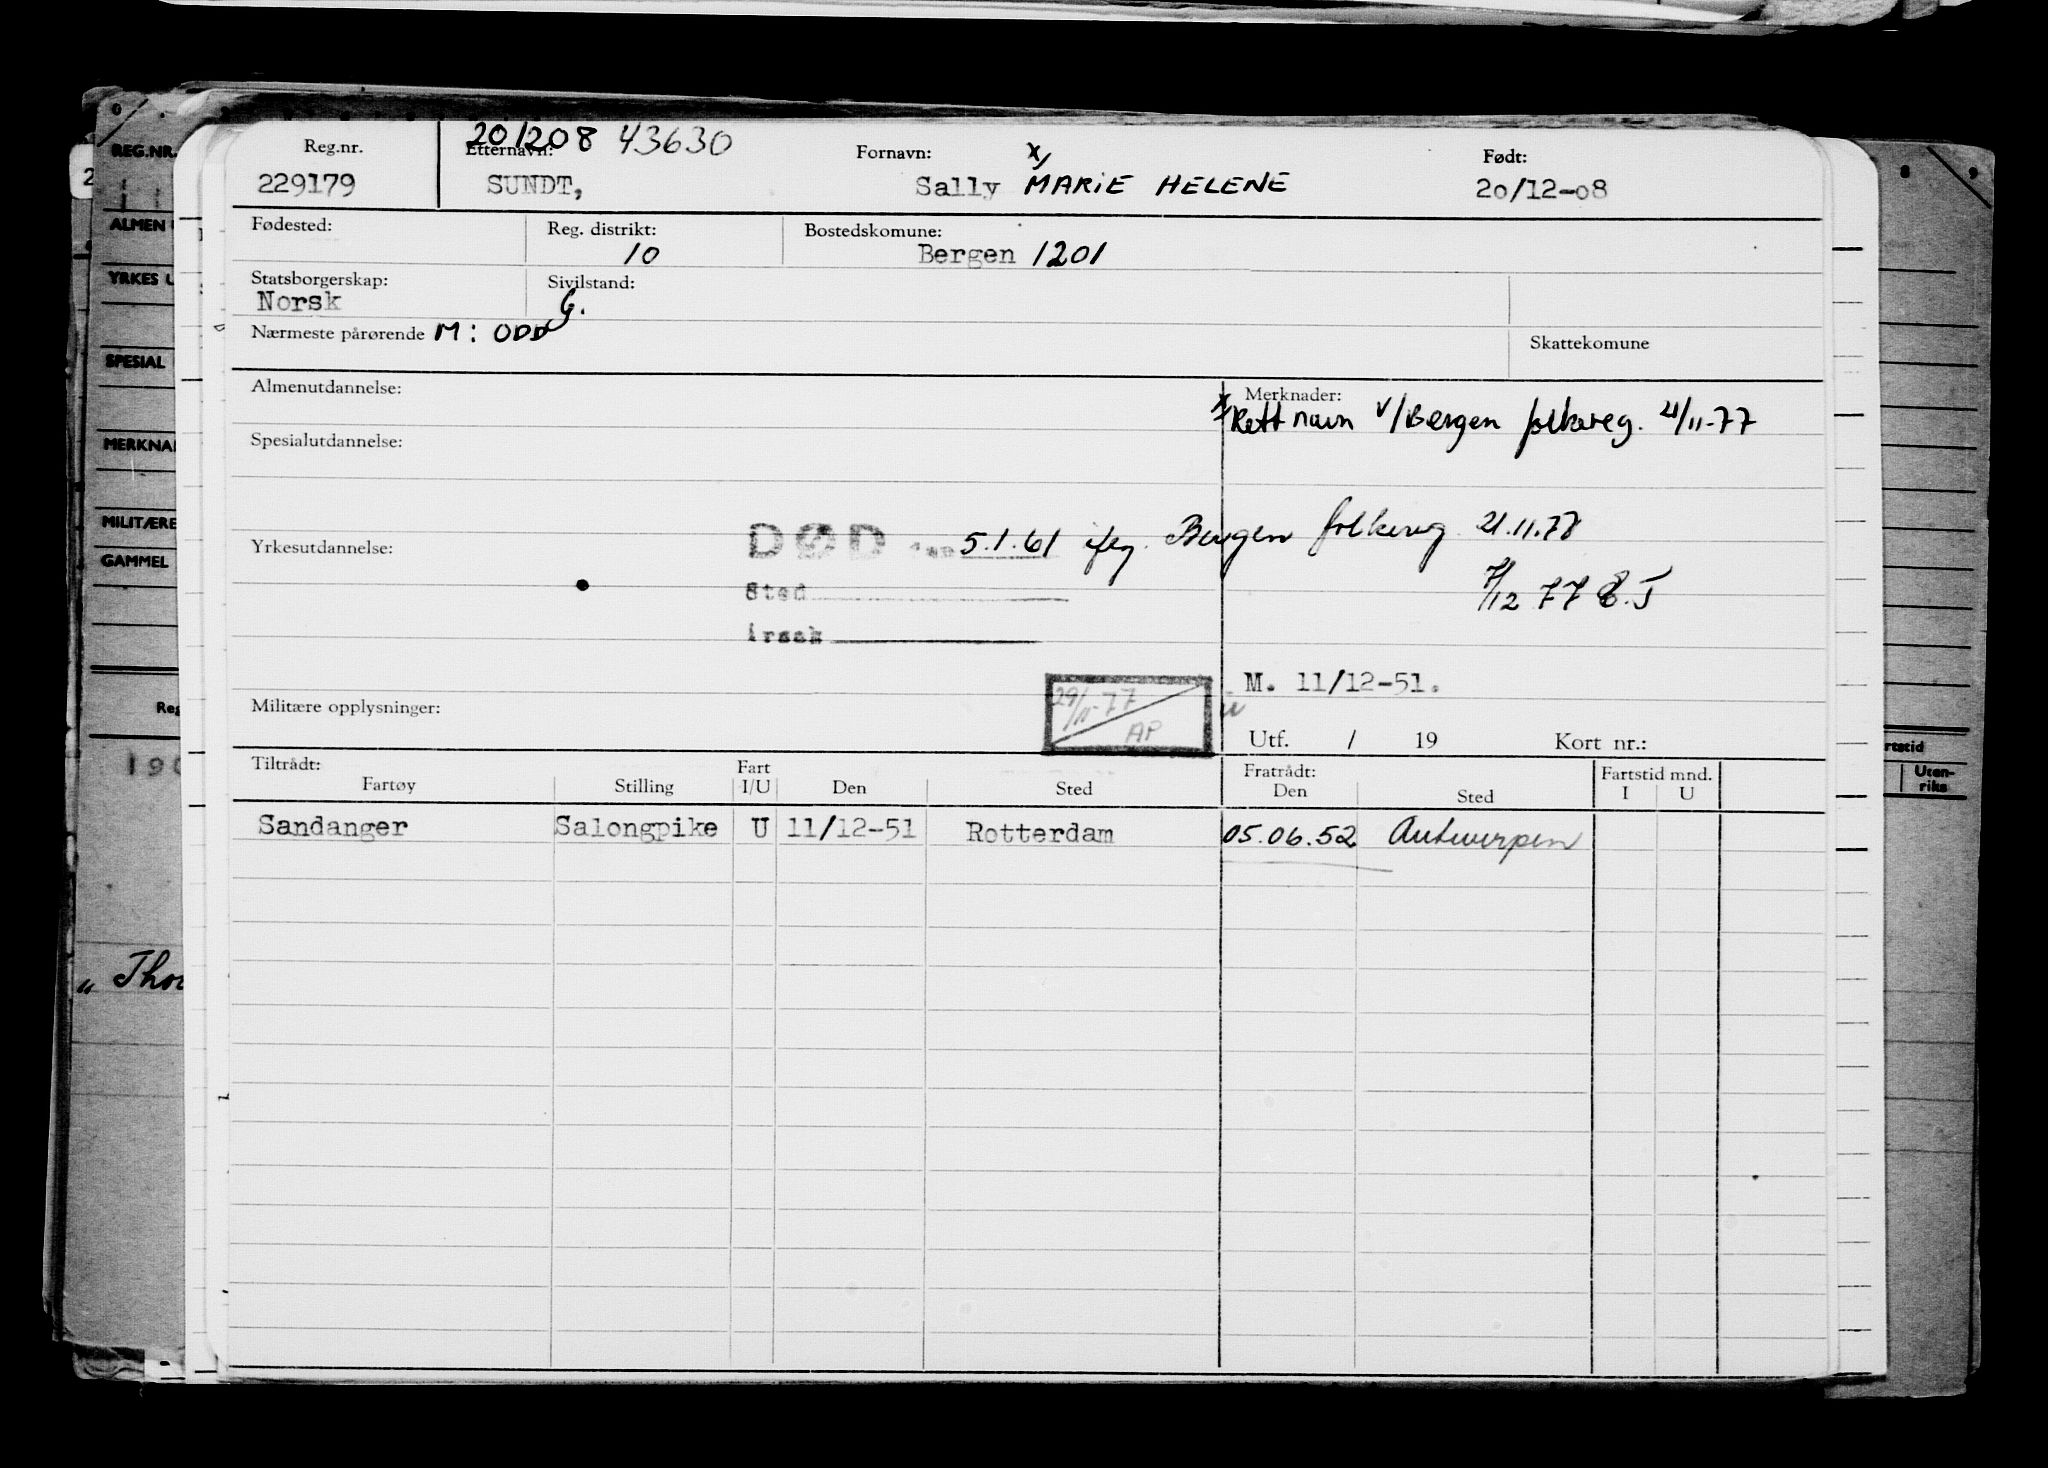 201208 43630
Reg.nr. Etternavn: Fornavn: x, Født:
229179 SUNDT, Sally MARIE HELENE 20/12-08
Fødested: Reg. distrikt: 10 Bostedskomune: Bergen 1201
Statsborgerskap: Norsk Sivilstand: G.
Nærmeste pårørende M: ODD Skattekomune
Almenutdannelse: Merknader:
x, Rett navn v/Bergen folkereg. 21/11-77
Spesialutdannelse:
DØD den 5.1.61 ifg. Bergen folkereg 21.11.77
Yrkesutdannelse:
Sted
7/12 77 E.J
årsak
M. 11/12-51.
29/11-77
AP
Militære opplysninger:
Utf. / 19 Kort nr.:
Tiltrådt: Fart Fratrådt: Fartstid mnd.
Fartøy Stilling I/U Den Sted Den Sted I U
Sandanger Salongpike U 11/12-51 Rotterdam 05.06.52 Antwerpen
REG.NR.
ALMEN
YRKES U
SPESIAL
MERKNA
MILITÆRE
GAMMEL
Reg
190
„ Tho
8 9
rtstid
Uten-
riks